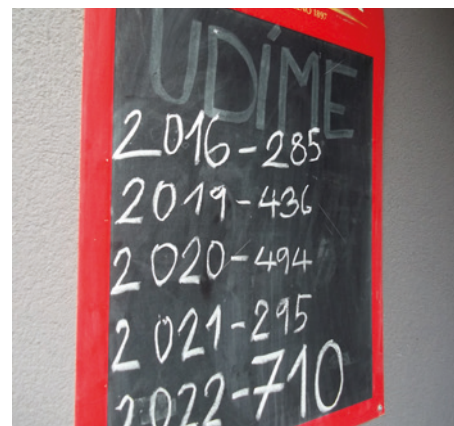 UDÍME
2016-285
2019-436
2020-494
2021-295
2022-710